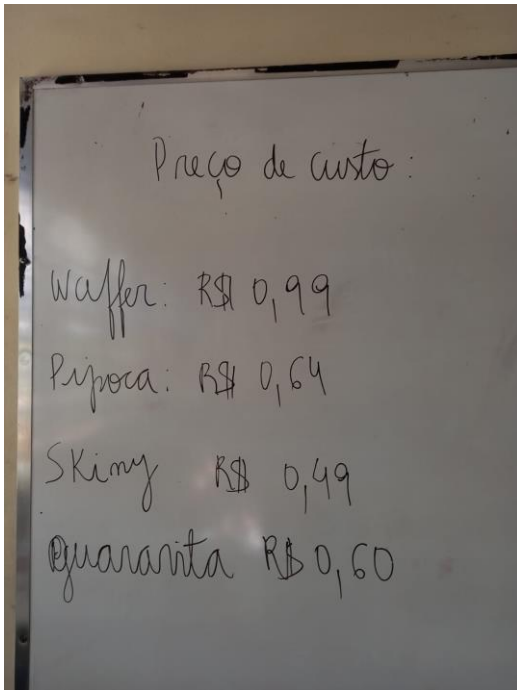 Preço de custo:
Waffer: R$ 0,99
Pipoca: R$ 0,64
Skiny R$ 0,49
guaravita R$ 0,60